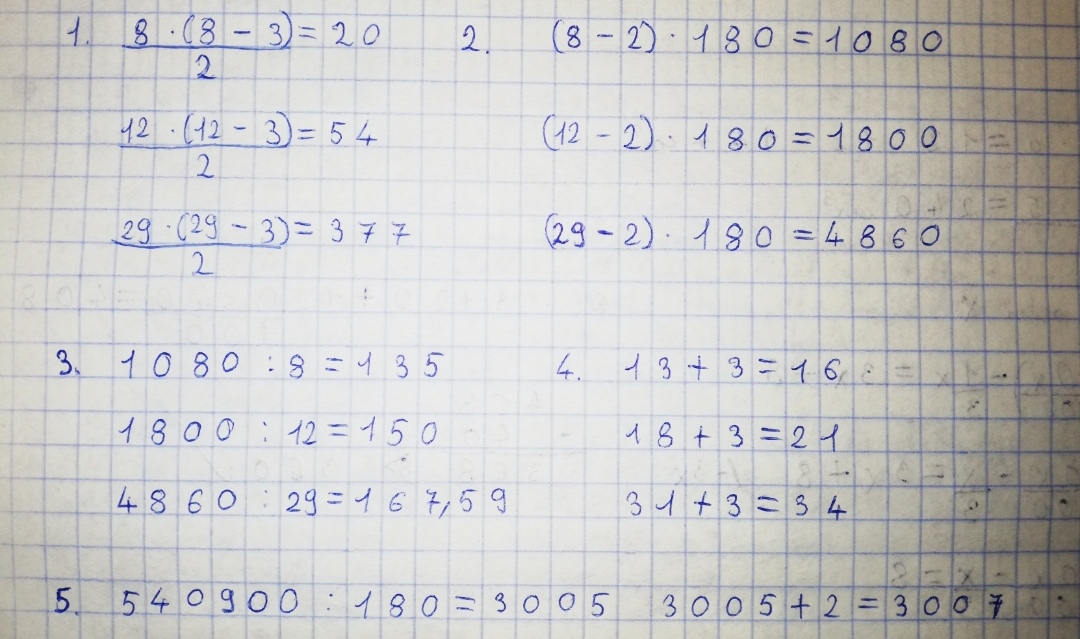 1. 8 · (8 - 3) = 20
2
2. (8 - 2) · 180 = 1080
12 · (12 - 3) = 54
2
(12 - 2) · 180 = 1800
29 · (29 - 3) = 377
2
(29 - 2) · 180 = 4860
3. 1080 : 8 = 135
1800 : 12 = 150
4860 : 29 = 167,59
4. 13 + 3 = 16
18 + 3 = 21
31 + 3 = 34
5. 540900 : 180 = 3005 3005 + 2 = 3007